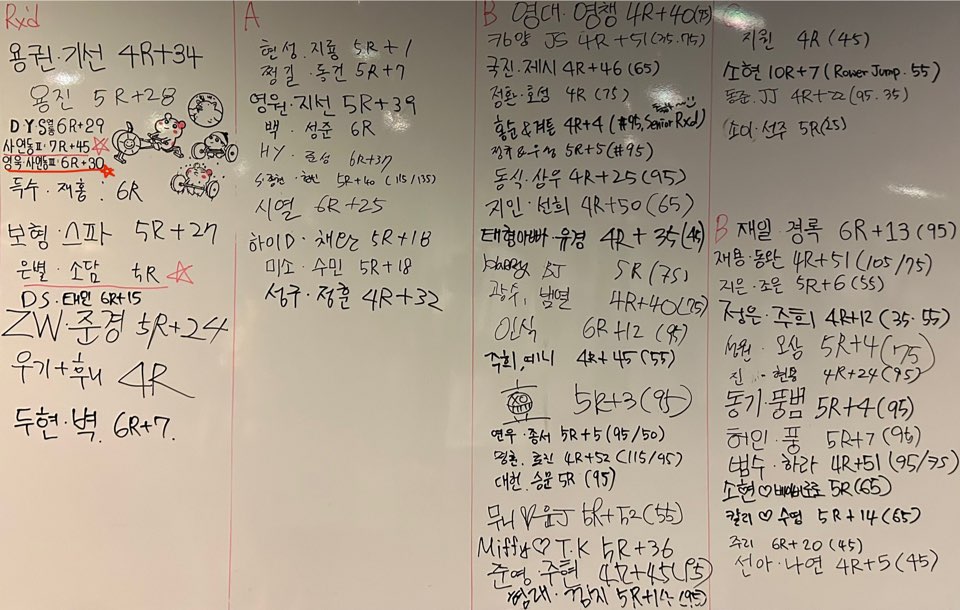 Rx'd
용권·기선 4R+34
용진 5R+28
DYS 6R+29
사연동표·7R+45
영욱·사연동표·6R+30
득수·재홍: 6R
보형·스파 5R+27
은별·소담 5R
DS·태민 6R+15
ZW·준경 5R+24
우기+후니 4R
두현·벽 6R+7.
A
현성·지룡 5R+1
쩡길·동건 5R+7
영원·지선 5R+39
백·성준 6R
HY· 6R+37
5R+40 (115/135)
시열 6R+25
하이D·채만 5R+18
미소·수민 5R+18
성구·정훈 4R+32
B 영대·영챙 4R+40(95)
JS 4R+51(35.75)
국진·제시 4R+46(65)
정환·호성 4R(75)
홍순& 4R+4(#95, Senior Rxd)
5R+5(#95)
동식·삼우 4R+25(95)
지인·선희 4R+50(65)
태험아빠·유경 4R+35(45)
BJ 5R(75)
광수, 범열 4R+40(75)
인식 6R+12 (95)
주희,떼니 4R+45(55)
5R+3(95)
연우·종서 5R+5(95/50)
4R+52(115/95)
대헌·승문 5R(95)
무니♡윤J 5R+52(55)
Miffy♡T.K 5R+36
준영·주현 4R+45(95)
5R+14(95)
지원 4R(45)
소현 10R+7(Rower Jump·55)
동준·JJ 4R+22(95.35)
소이·선주 5R(25)
B 재일·경록 6R+13(95)
재용·동완 4R+51(105/75)
지은·조은 5R+6(55)
정은·주희 4R+12(35·55)
오삼 5R+4(75)
진·현용 4R+24(95)
동기·풍범 5R+4(95)
허인·풍 5R+7(95)
범수·하라 4R+51(95/75)
소현♡ 5R(65)
칼리♡수염 5R+14(65)
주리 6R+20(45)
선아·나연 4R+5(45)